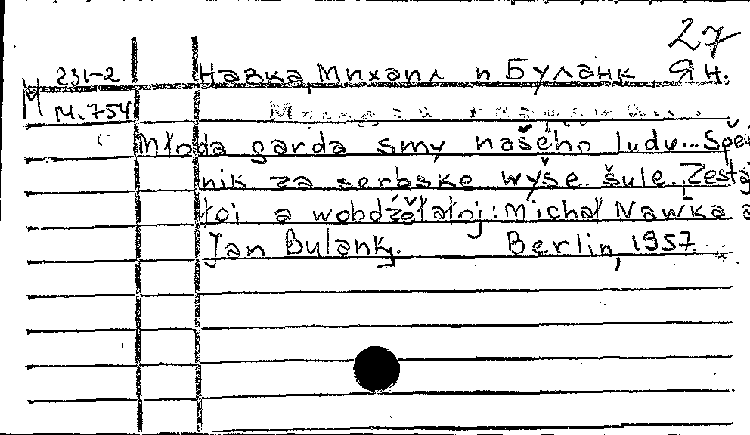 27
231-2 Навка, Михаил и Буланк, Ян.
М
М.754
Młoda garda smy našeho ludu... Spěw
nik za serbske wyše šule. Zesta
łoj a wobdźěłałoj: Michał Nawka a
Jan Bulank. Berlin, 1957.